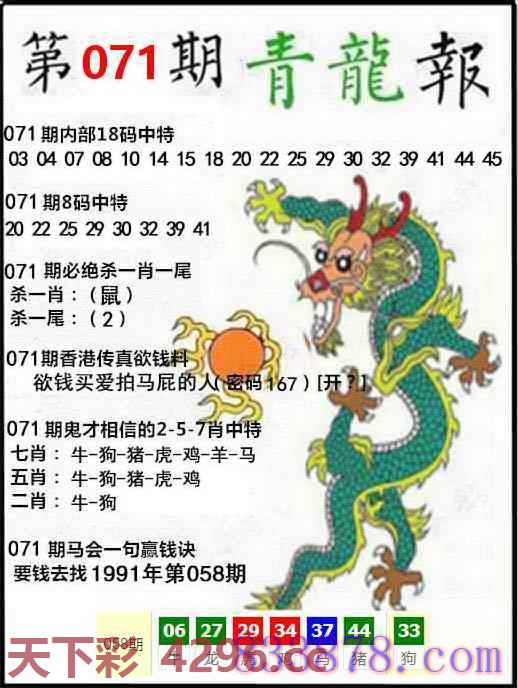 第071期青龍報
071期内部18码中特
03 04 07 08 10 14 15 18 20 22 25 29 30 32 39 41 44 45
071期8码中特
20 22 25 29 30 32 39 41
071期必绝杀一肖一尾
杀一肖：（鼠）
杀一尾：（2）
071期香港传真欲钱料
欲钱买爱拍马屁的人（密码167）[开？]
071期鬼才相信的2-5-7肖中特
七肖：牛-狗-猪-虎-鸡-羊-马
五肖：牛-狗-猪-虎-鸡
二肖：牛-狗
071期马会一句赢钱诀
要钱去找1991年第058期
058期 06 27 29 34 37 44 33
牛 龙 虎 鸡 马 猪 狗
天下彩 4296.cc